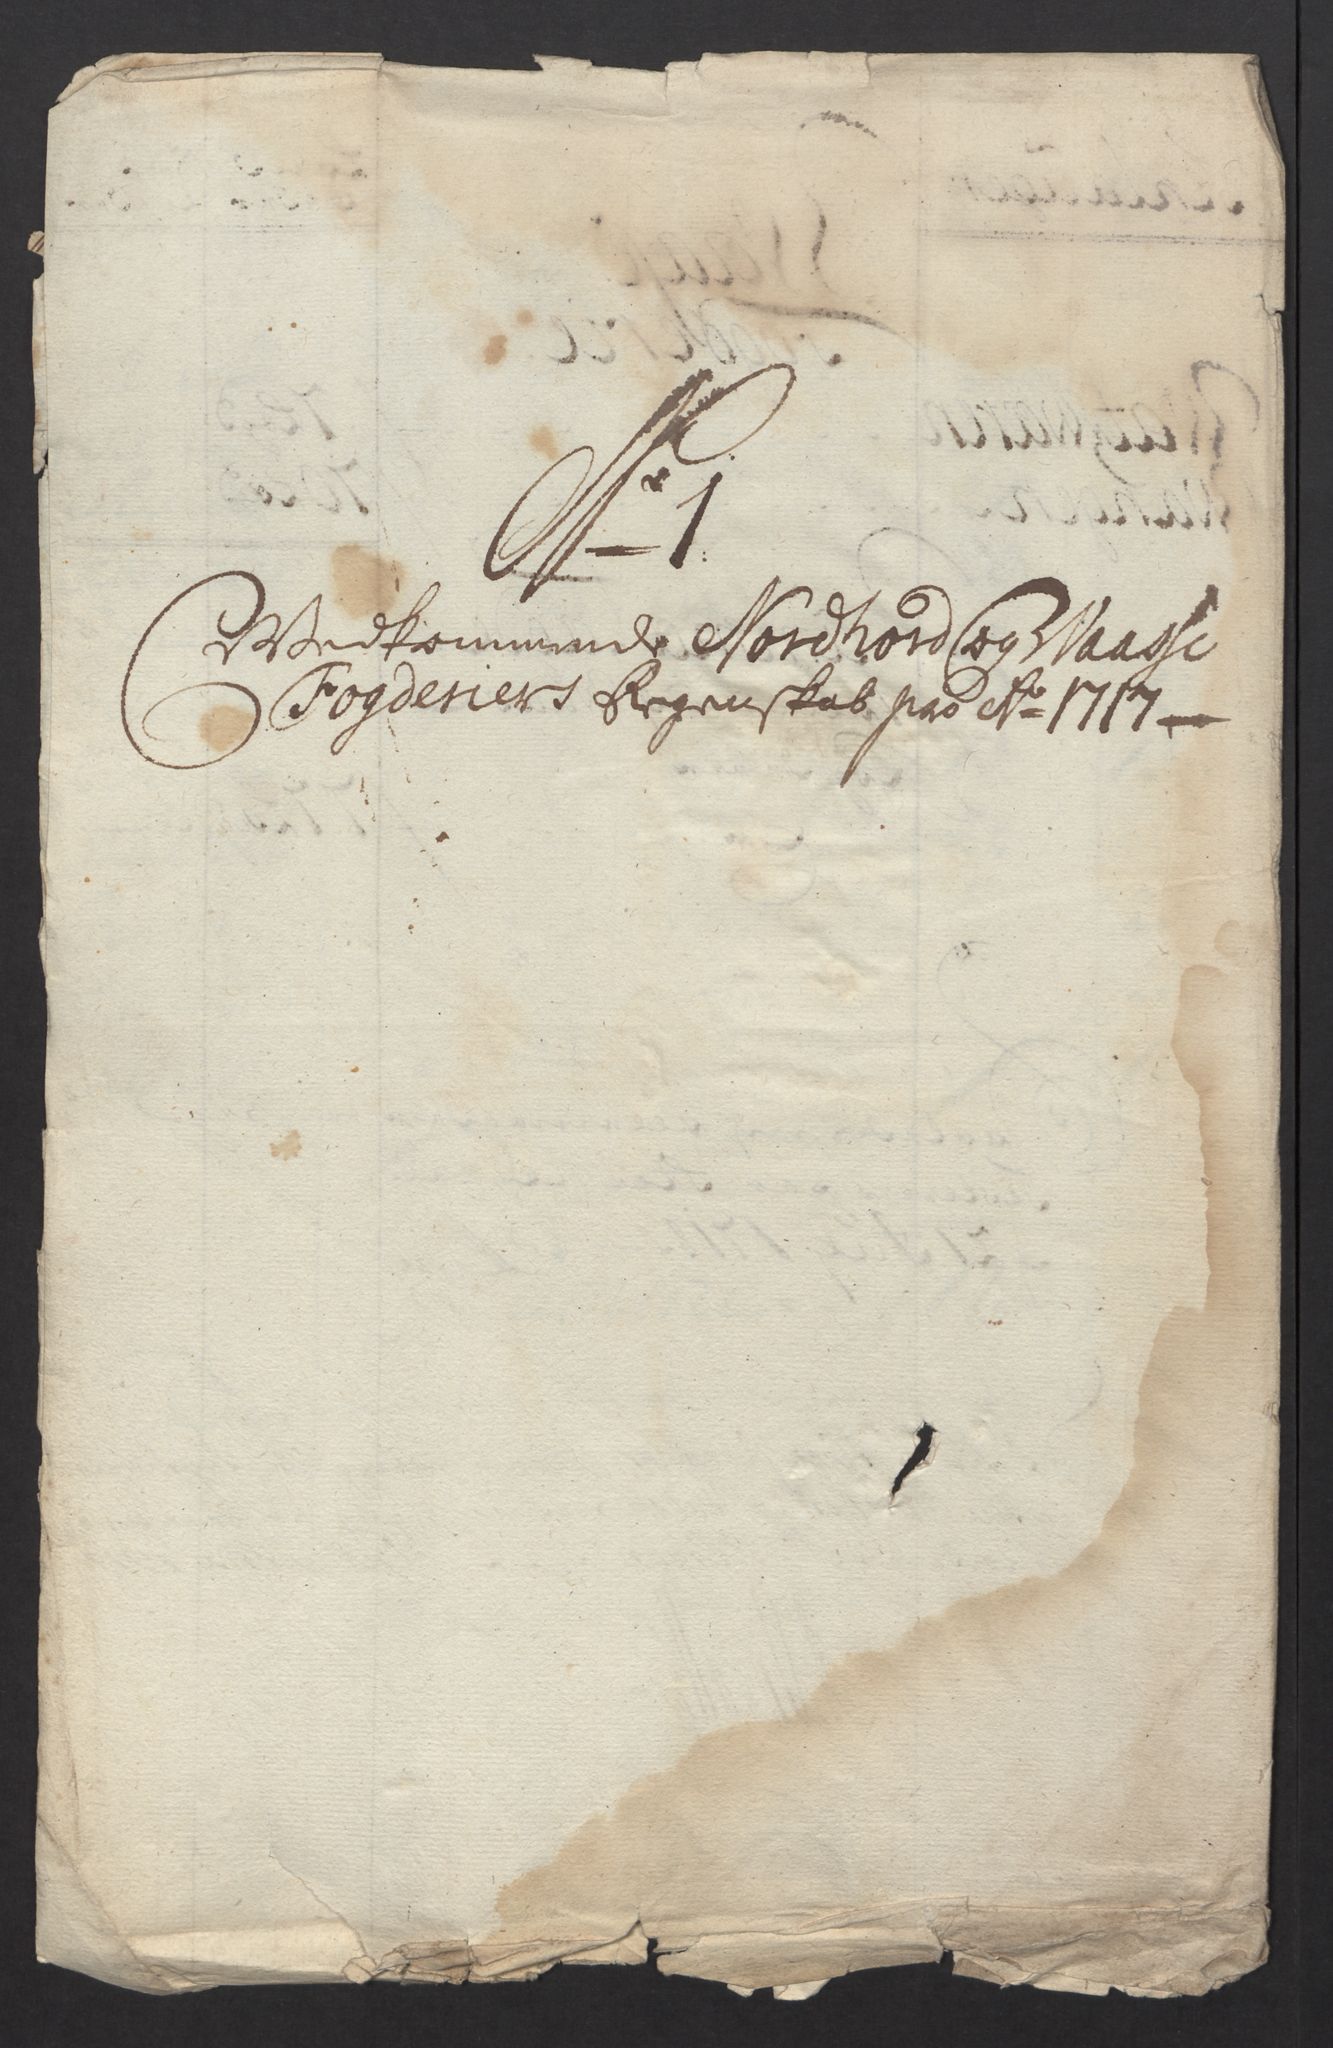 No 1
Vedkommende Nordhord og Waasse
Fogderiers Regenskab pro Ao 1717